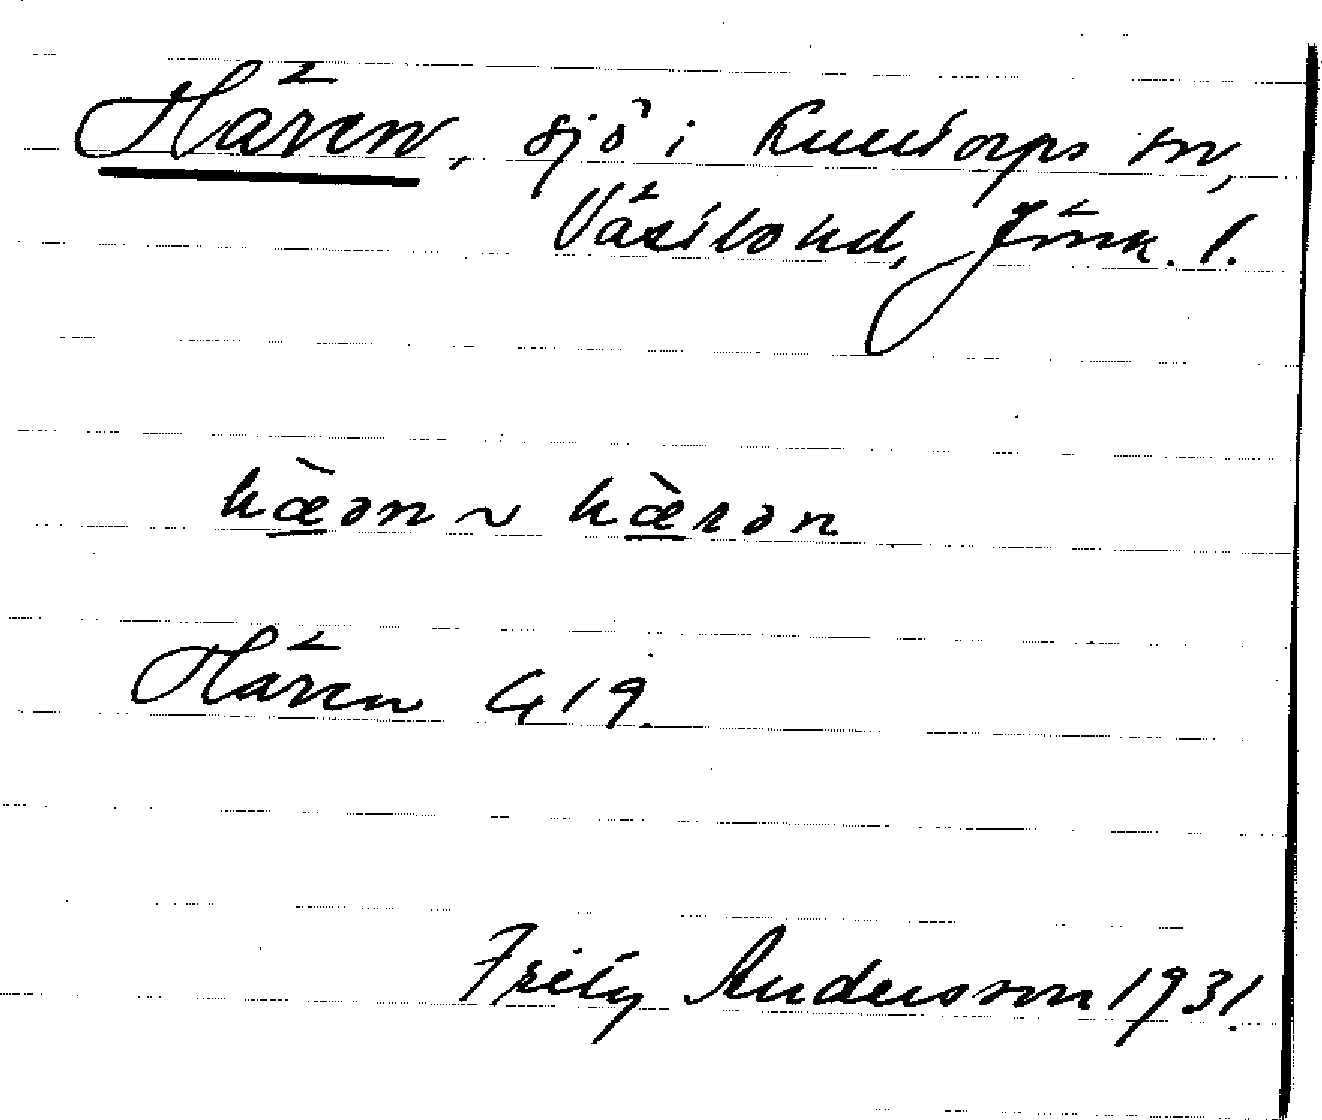 Hären, sjö i Kulltorps sn,
Västbo hd, Jönk. l.
hæ̀ən ~ hæ̀rən
Hären G 19.
Fritz Andersson 1931.